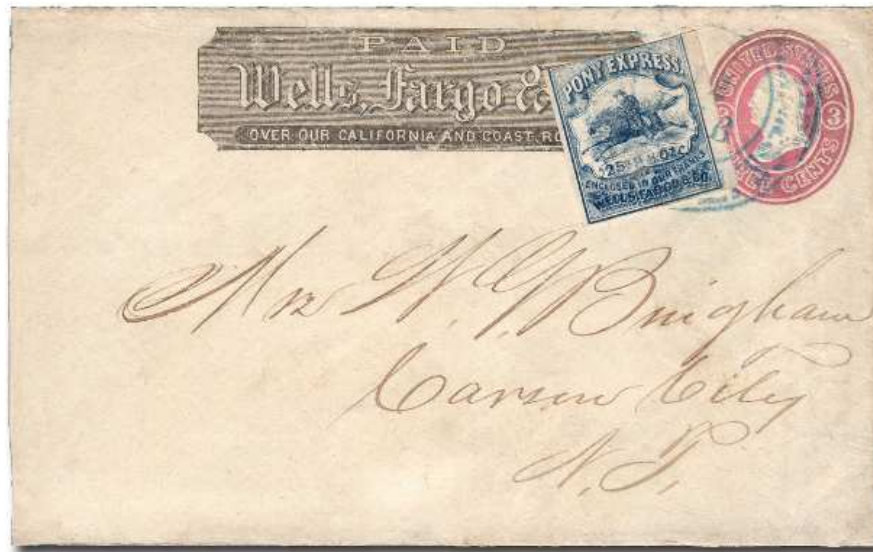 PAID
Wells, Fargo &
OVER OUR CALIFORNIA AND COAST RO
PONY EXPRESS
25 OZ
ENCLOSED IN OUR FRANKS
WELLS, FARGO & CO.
UNITED STATES
3
CENTS
Mrs W. G. Bingham
Carson City
N. T.